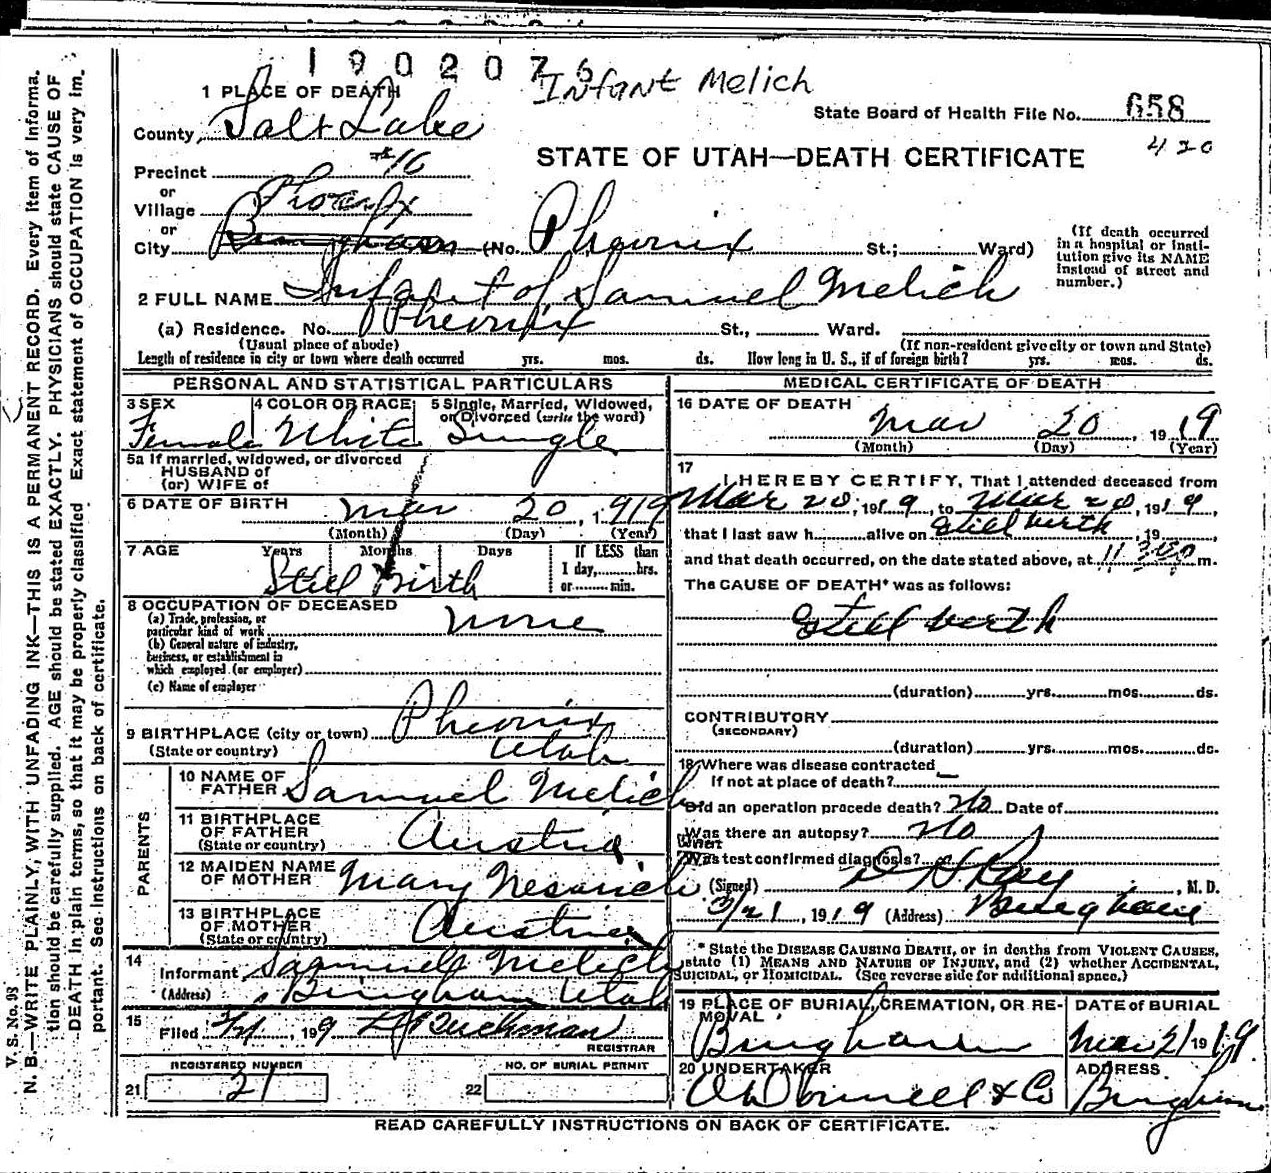 1902076
Infant Melich
1 PLACE OF DEATH
State Board of Health File No. 658
County, Salt Lake
420
STATE OF UTAH—DEATH CERTIFICATE
Precinct #16
or
Village Phoenix
or
City Bingham (No. Pheonix St.; Ward)
(If death occurred in a hospital or insti-
tution give its NAME
instead of street and
number.)
2 FULL NAME Infant of Samuel Melich
(a) Residence. No. Pheonix St., Ward.
(Usual place of abode)
(If non-resident give city or town and State)
Length of residence in city or town where death occurred yrs. mos. ds. How long in U. S., if of foreign birth? yrs. mos. ds.
PERSONAL AND STATISTICAL PARTICULARS
3 SEX Female
4 COLOR OR RACE White
5 Single, Married, Widowed,
or Divorced (write the word) Single
5a If married, widowed, or divorced
HUSBAND of
(or) WIFE of
6 DATE OF BIRTH Mar 20, 1919
(Month) (Day) (Year)
7 AGE Years Months Days If LESS than
1 day, hrs.
or min.
Still Birth
8 OCCUPATION OF DECEASED
(a) Trade, profession, or
particular kind of work none
(b) General nature of industry,
business, or establishment in
which employed (or employer)
(c) Name of employer
9 BIRTHPLACE (city or town) Pheonix
(State or country) Utah
PARENTS
10 NAME OF
FATHER Samuel Melich
11 BIRTHPLACE
OF FATHER
(State or country) Austria
12 MAIDEN NAME
OF MOTHER Mary
13 BIRTHPLACE
OF MOTHER
(State or country) Austria
14
Informant Samuel Melich
(Address) Bingham Utah
15
Filed , 19 9
REGISTRAR
REGISTERED NUMBER
21 21
NO. OF BURIAL PERMIT
22
MEDICAL CERTIFICATE OF DEATH
16 DATE OF DEATH
Mar 20, 1919
(Month) (Day) (Year)
17
I HEREBY CERTIFY, That I attended deceased from
Mar 20, 1919, to Mar 20, 1919,
that I last saw h alive on Still birth, 19 ,
and that death occurred, on the date stated above, at m.
The CAUSE OF DEATH* was as follows:
Still birth
(duration) yrs. mos. ds.
CONTRIBUTORY
(SECONDARY)
(duration) yrs. mos. ds.
18 Where was disease contracted
If not at place of death?
Did an operation precede death? No Date of
Was there an autopsy? No
What test confirmed diagnosis?
(Signed) , M. D.
3/21, 1919 (Address) Bingham
* State the DISEASE CAUSING DEATH, or in deaths from VIOLENT CAUSES,
state (1) MEANS AND NATURE OF INJURY, and (2) whether ACCIDENTAL,
SUICIDAL, or HOMICIDAL. (See reverse side for additional space.)
19 PLACE OF BURIAL, CREMATION, OR RE-
MOVAL Bingham
DATE OF BURIAL
Mar 21 1919
20 UNDERTAKER
O'Donnell & Co
ADDRESS
Bingham
READ CAREFULLY INSTRUCTIONS ON BACK OF CERTIFICATE.
V. S. No. 98
N. B.—WRITE PLAINLY, WITH UNFADING INK—THIS IS A PERMANENT RECORD. Every item of informa-
tion should be carefully supplied. AGE should be stated EXACTLY. PHYSICIANS should state CAUSE OF
DEATH in plain terms, so that it may be properly classified. Exact statement of OCCUPATION is very im-
portant. See instructions on back of certificate.